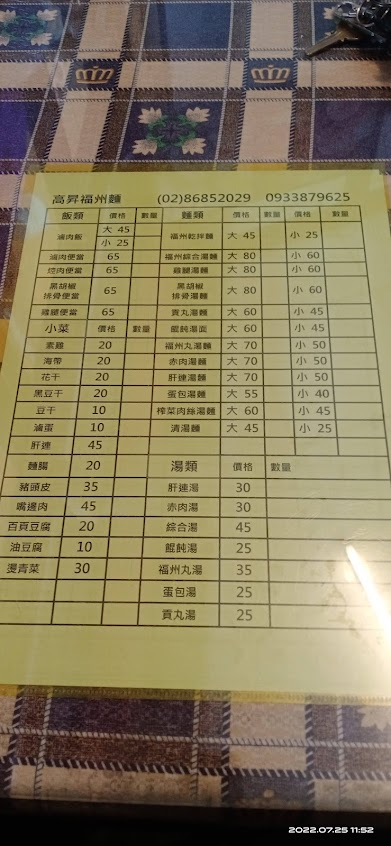 高昇福州麵 (02)86852029 0933879625
飯類 價格 數量 麵類 價格 數量 價格 數量
滷肉飯 大 45 福州乾拌麵 大 45 小 25
小 25
滷肉便當 65 福州綜合湯麵 大 80 小 60
焢肉便當 65 雞腿湯麵 大 80 小 60
黑胡椒排骨便當 65 黑胡椒排骨湯麵 大 80 小 60
雞腿便當 65 貢丸湯麵 大 60 小 45
小菜 價格 數量 餛飩湯面 大 60 小 45
素雞 20 福州丸湯麵 大 70 小 50
海帶 20 赤肉湯麵 大 70 小 50
花干 20 肝連湯麵 大 70 小 50
黑豆干 20 蛋包湯麵 大 55 小 40
豆干 10 榨菜肉絲湯麵 大 60 小 45
滷蛋 10 清湯麵 大 45 小 25
肝連 45
麵腸 20 湯類 價格 數量
豬頭皮 35 肝連湯 30
嘴邊肉 45 赤肉湯 30
百頁豆腐 20 綜合湯 45
油豆腐 10 餛飩湯 25
燙青菜 30 福州丸湯 35
蛋包湯 25
貢丸湯 25
2022.07.25 11:52